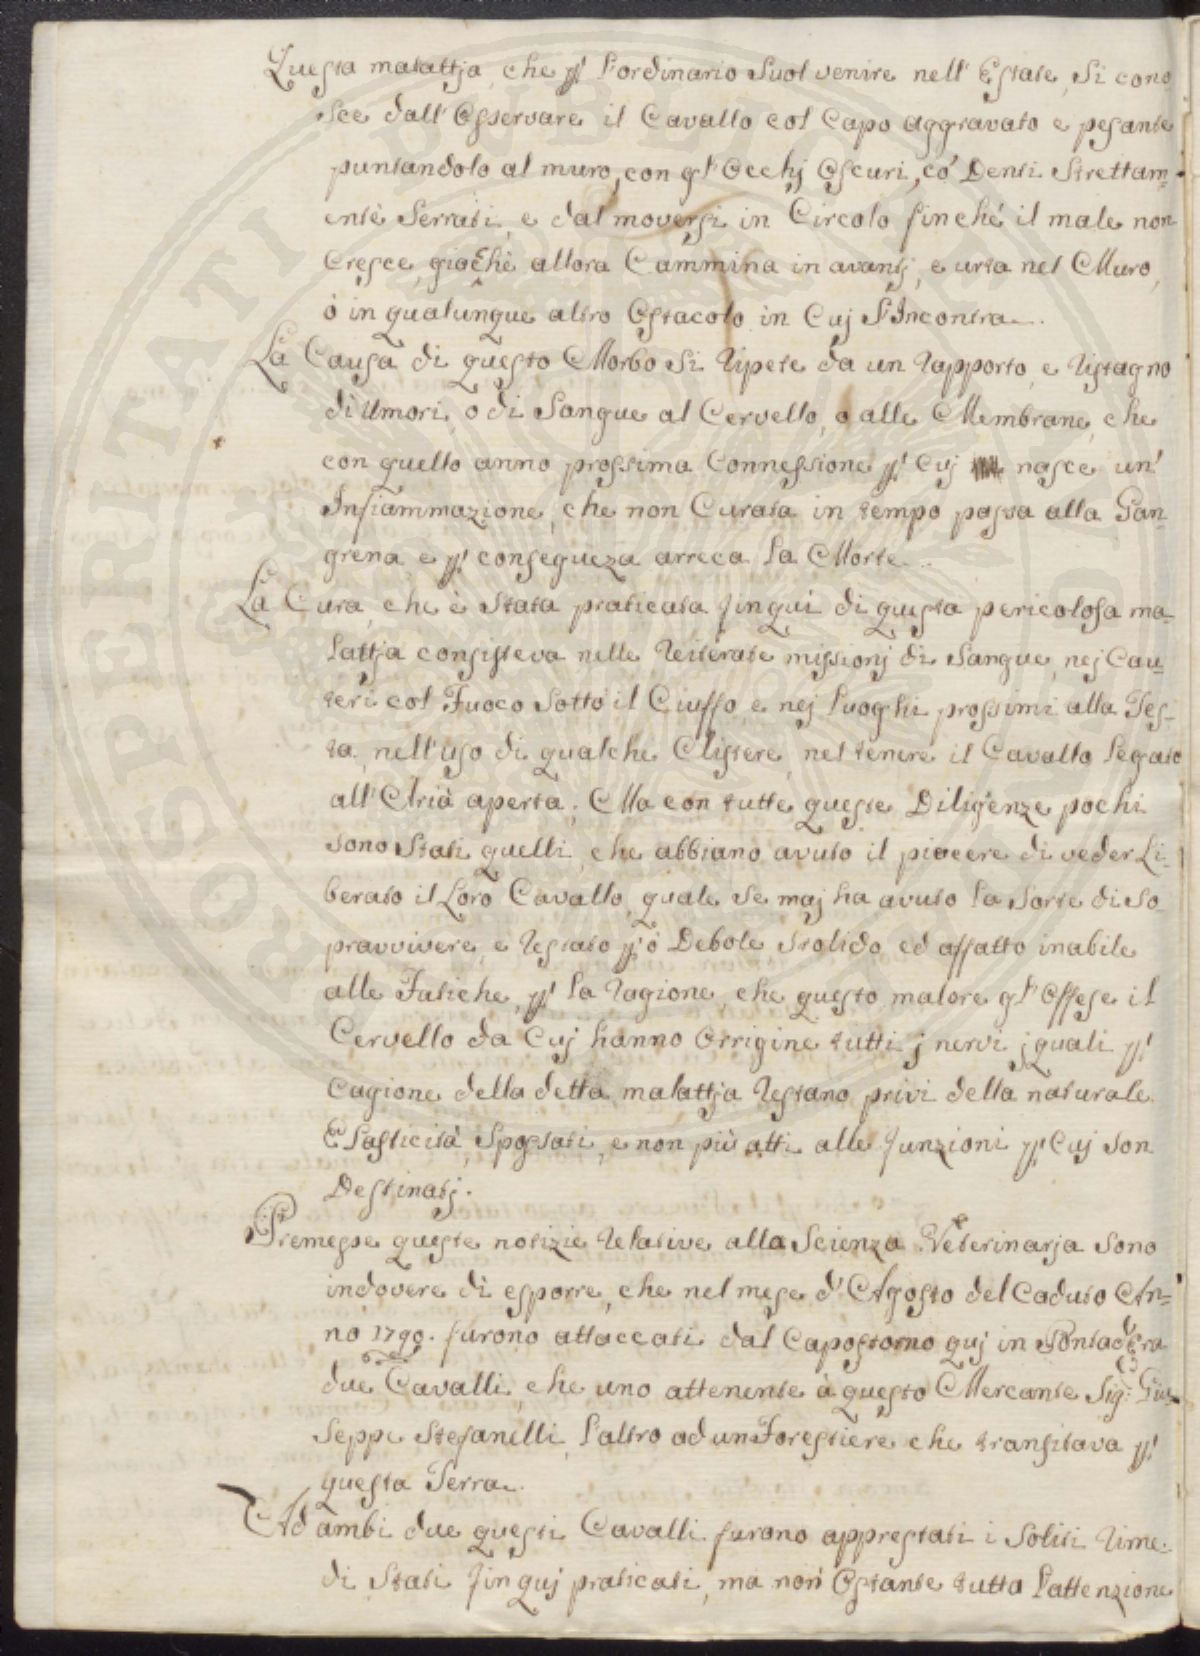 Questa malattja, che p' l'ordinario Suol venire nell' Estate, Si cono
sce dall' Osservare il Cavallo col Capo aggravato e pesante
puntandolo al muro, con gl' Occhj Oscuri, co' Denti Strettam=
ente Serrati, e dal moversi in Circolo finché il male non
Cresce, giocchè allora Cammina in avantj, e urta nel Muro,
ò in qualunque altro Ostacolo in Cuj S'Incontra.
La Causa di questo Morbo Si Ripete da un Rapporto, e Ristagno
di Umori, o di Sangue al Cervello, o alle Membrane, che
con quello anno prossima Connessione p' Cuj nasce un'
Infiammazione, che non Curata in tempo passa alla Gan=
grena, e p' consegueza arreca la Morte.
La Cura, che è Stata praticata finquì di questa pericolosa ma=
lattja consisteva nelle Reiterate missionj di Sangue, nej Cau=
teri col Fuoco Sotto il Ciuffo, e nej luoghi prossimi alla Tes=
ta, nell'uso di qualche Clistere, nel tenere il Cavallo legato
all'Aria aperta; Ma con tutte queste Diligenze pochi
sono Stati quelli, che abbiano avuto il piacere di veder Li=
berato il Loro Cavallo, quale se maj ha avuto la Sorte di So
pravvivere, e Restato p'ò Debole Stolido, ed affatto inabile
alle Fatiche, p' la Ragione, che questo malore gl' Offese il
Cervello da Cuj hanno Orrigine tutti j nervi, j quali p'
Cagione della detta malattja Restano privi della naturale
Elasticità, Spossati, e non più atti alle funzioni p' Cuj Son
Destinatj.
Premesse queste notizie Relative alla Scienza Veterinarja Sono
indovere di esporre, che nel mese d' Agosto del Caduto An=
no 1790. furono attaccati dal Capostorno quj in Pontadera
due Cavalli, che uno attenente à questo Mercante Sig: Giu=
Seppe Stefanelli, l'altro ad un Forestiere che transitava p'
questa Terra.
Ad ambi due questi Cavalli furono apprestati i Soliti Rime=
di Stati finquj praticati, ma non Ostante tutta l'attenzione